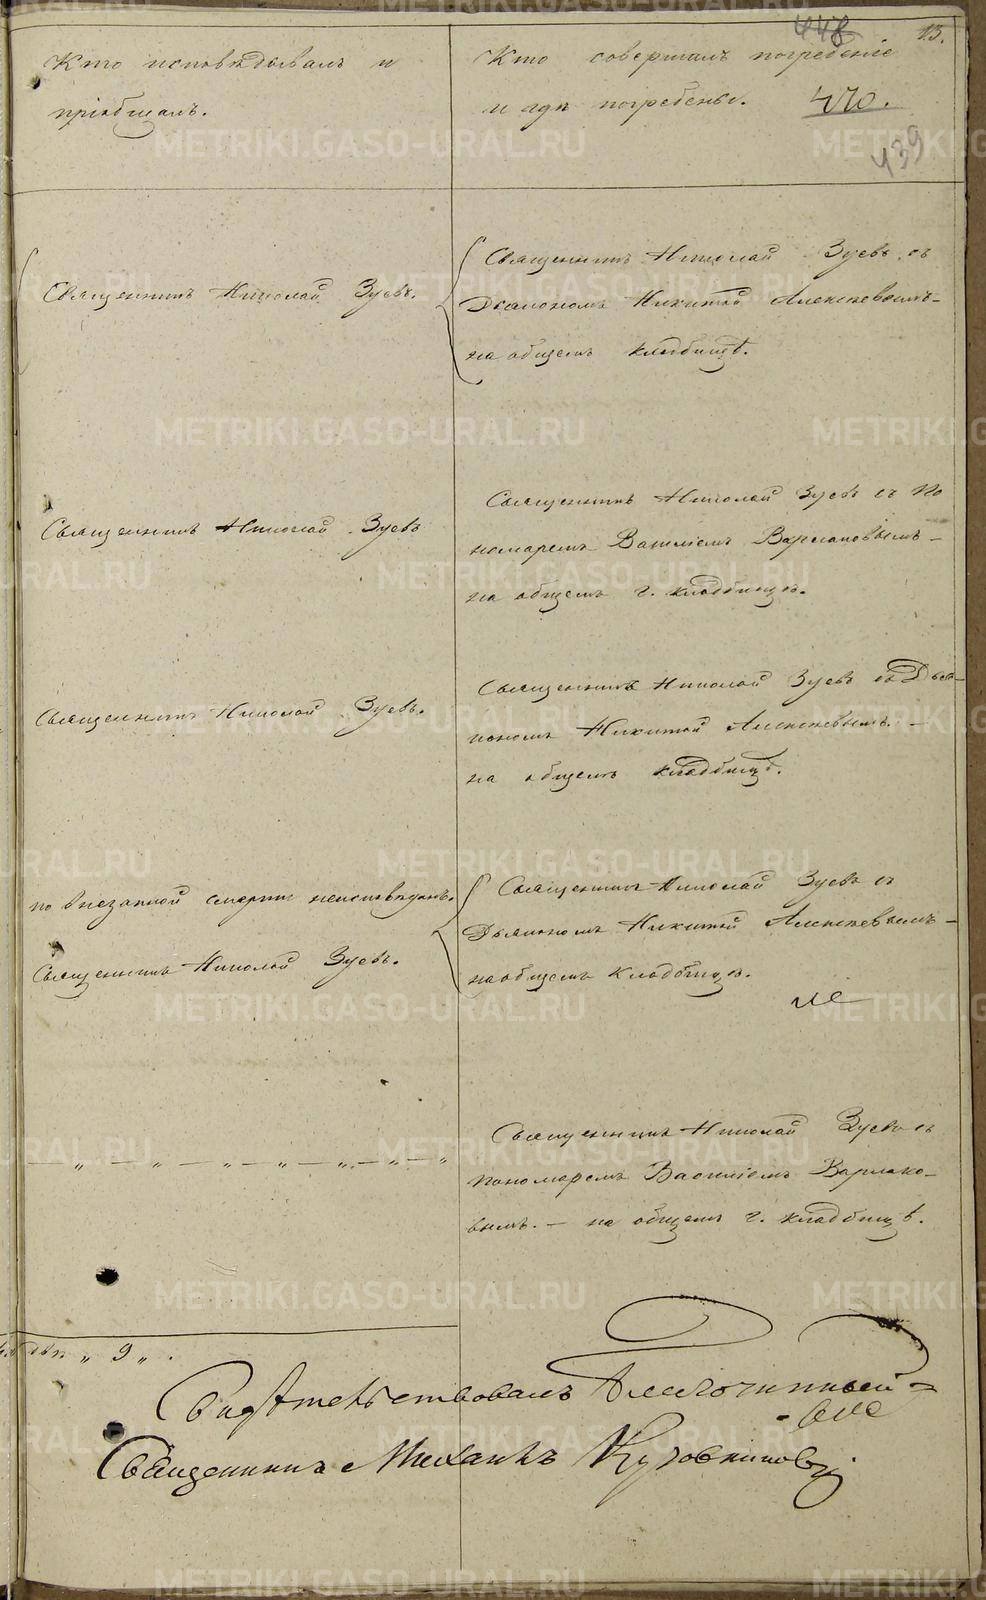 448 13.
Кто исповѣдывалъ и
пріобщалъ.
Кто совершалъ погребеніе
и гдѣ погребены. 470.
439
Священникъ Николай Зуевъ.
Священникъ Николай Зуевъ съ
Діакономъ Никитой Алексѣевымъ
на общемъ кладбищѣ.
Священникъ Николай Зуевъ
Священникъ Николай Зуевъ съ По
номаремъ Василіемъ Варлаковымъ –
на общемъ г. кладбищѣ.
Священникъ Николай Зуевъ.
Священникъ Николай Зуевъ съ Дья-
кономъ Никитой Алексѣевымъ –
на общемъ кладбищѣ.
по внезапной смерти неисповѣданъ.
Священникъ Николай Зуевъ.
Священникъ Николай Зуевъ съ
Дьякономъ Никитой Алексѣевымъ –
на общемъ кладбищѣ.
— „ — „ — „ — „ — „ — „ — „
Священникъ Николай Зуевъ съ
пономаремъ Василіемъ Варлако-
вымъ. – на общемъ г. кладбищѣ.
„ 9 „.
Свидѣтельствовалъ Благочинный
Священникъ Михаилъ Кутовниковъ
METRIKI.GASO-URAL.RU